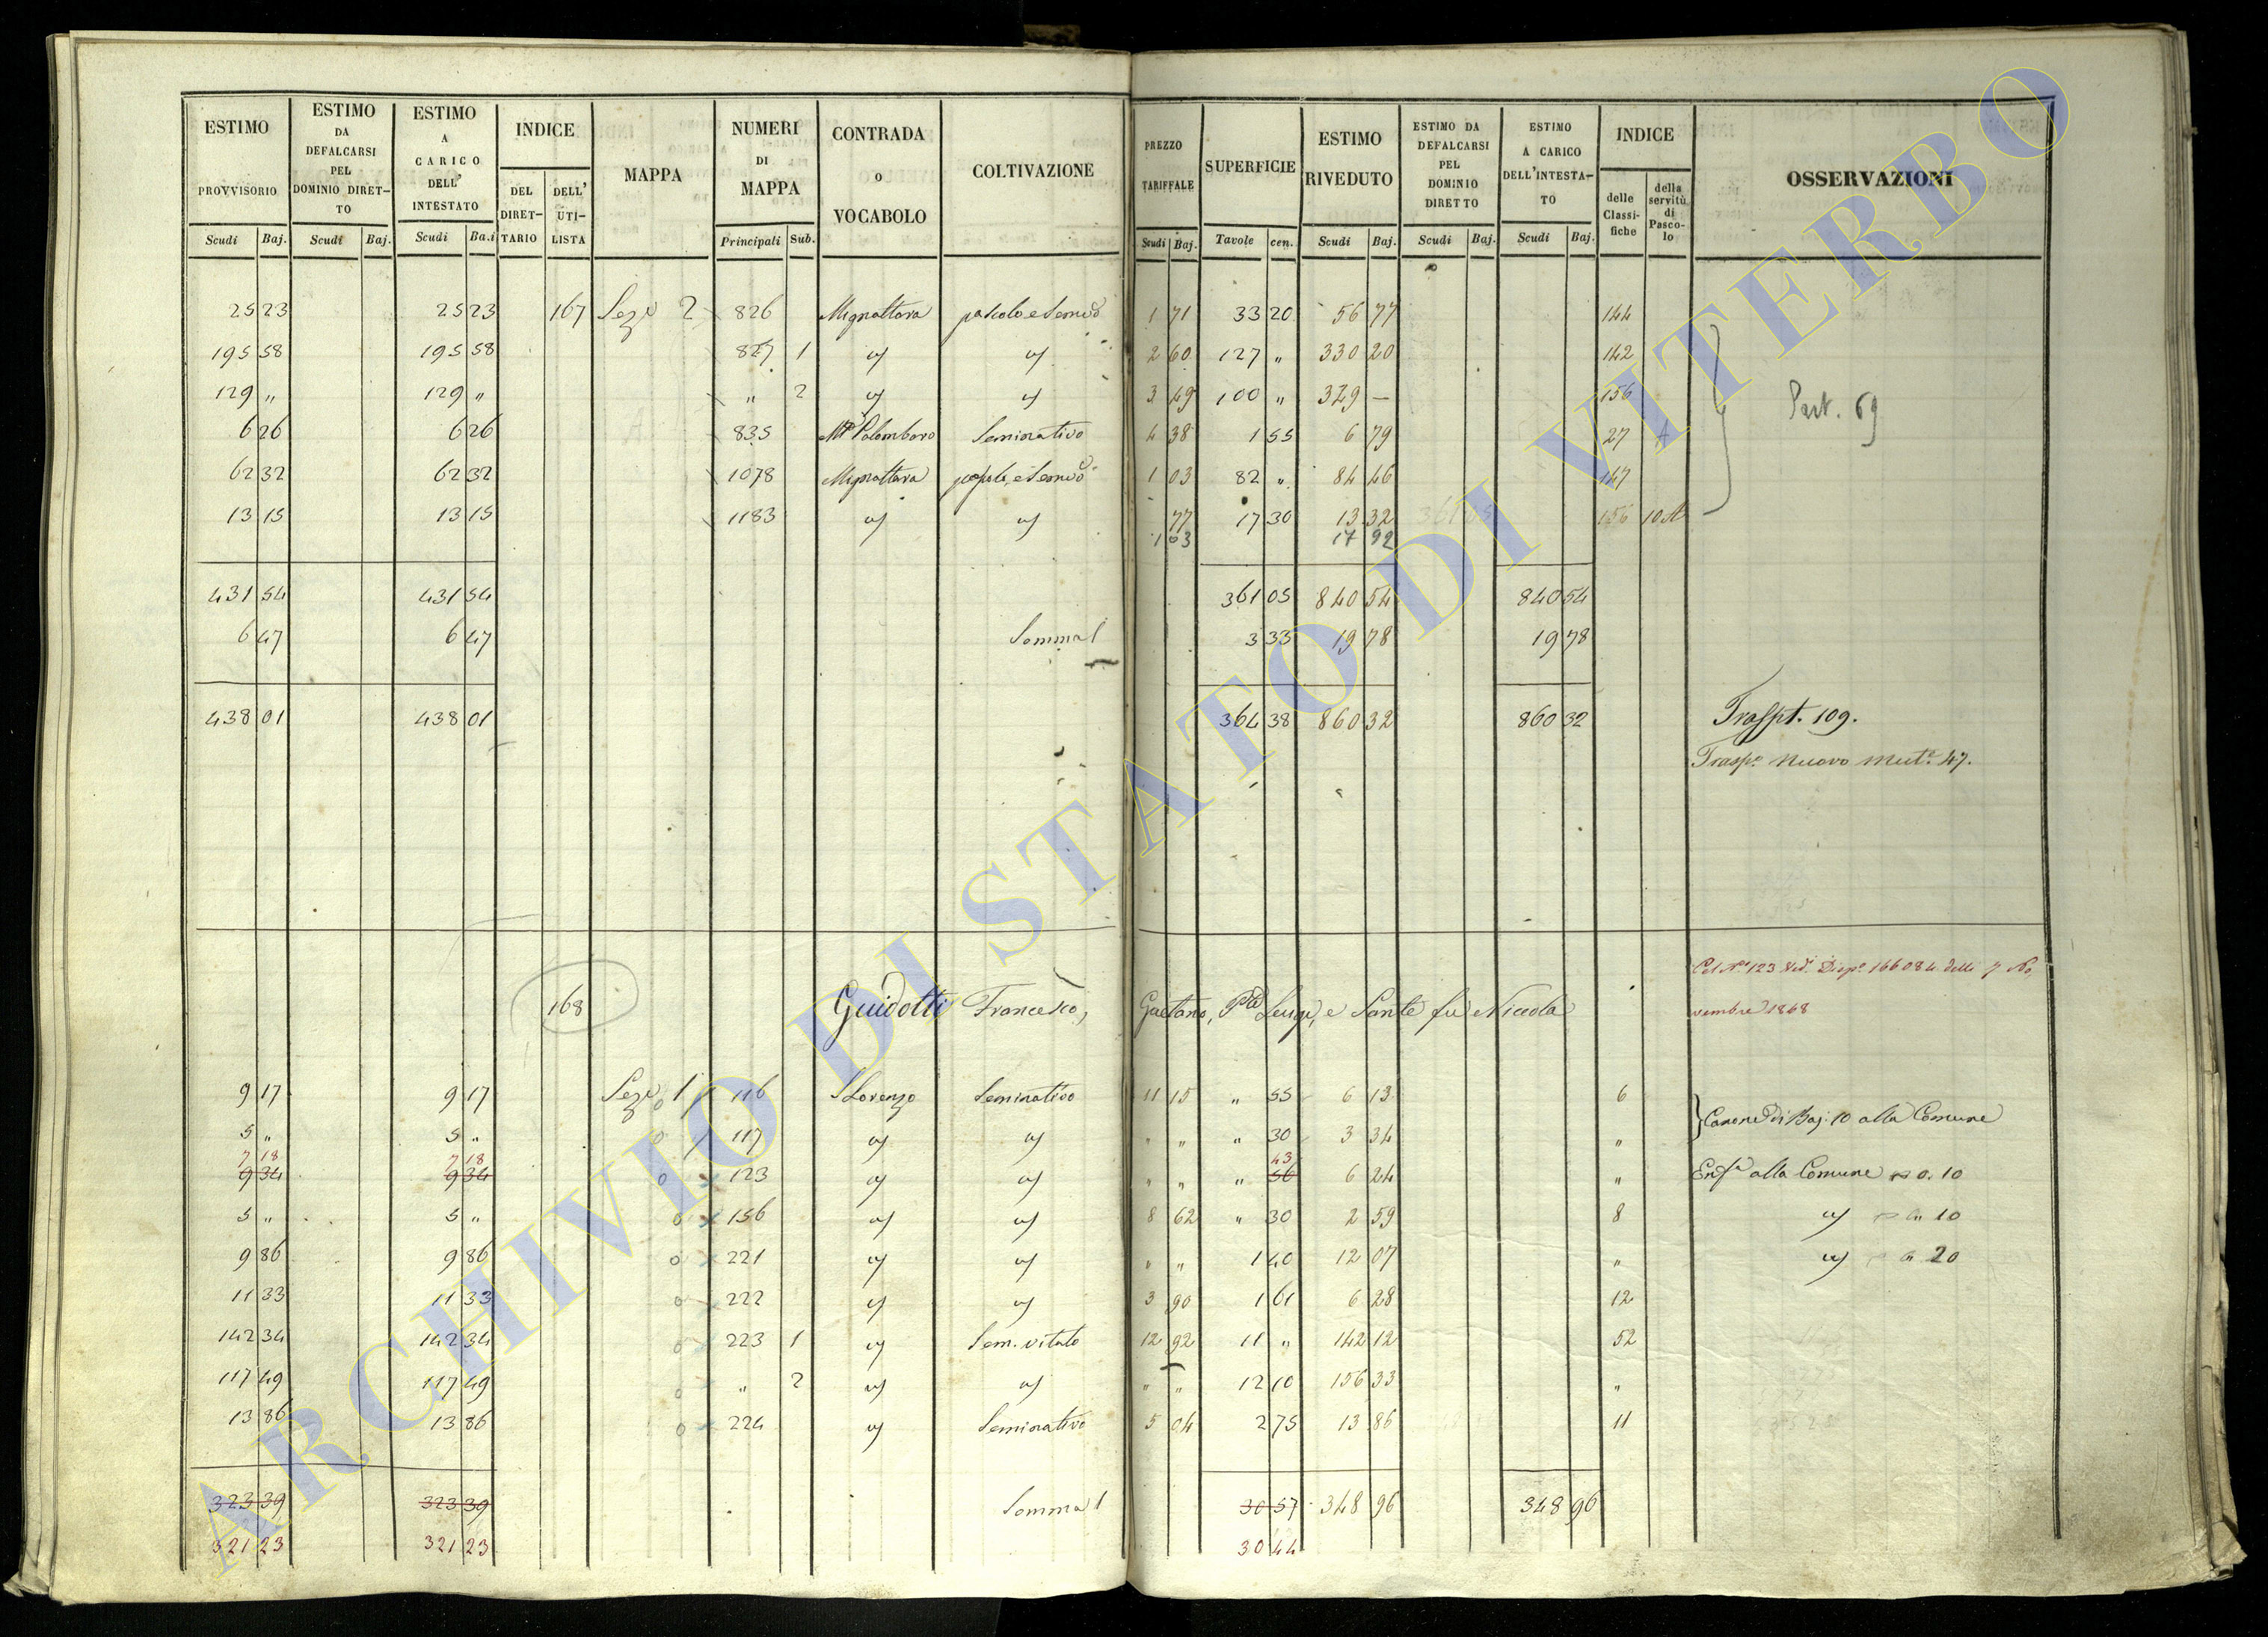 ESTIMO PROVVISORIO Scudi Baj.
ESTIMO DA DEFALCARSI PEL DOMINIO DIRET-TO Scudi Baj.
ESTIMO A CARICO DELL' INTESTATO Scudi Ba.i
INDICE DEL DIRET-TARIO DELL' UTI-LISTA
MAPPA
NUMERI DI MAPPA Principali Sub.
CONTRADA o VOCABOLO
COLTIVAZIONE
PREZZO TARIFFALE Scudi Baj.
SUPERFICIE Tavole cen.
ESTIMO RIVEDUTO Scudi Baj.
ESTIMO DA DEFALCARSI PEL DOMINIO DIRETTO Scudi Baj.
ESTIMO A CARICO DELL'INTESTA-TO Scudi Baj.
INDICE delle Classi-fiche della servitù di Pasco-lo
OSSERVAZIONI
25 23 25 23 167 Seze 2 826 Mignattara pascolo e Semivo 1 71 33 20 56 77 144
195 58 195 58 827 1 " " 2 60 127 " 330 20 142
129 " 129 " " 2 " " 3 49 100 " 329 — 156 Part. 69
6 26 6 26 835 Mte Palombaro Seminativo 4 38 1 55 6 79 27 A
62 32 62 32 1078 Mignattara 1 03 82 " 84 46 147
13 15 13 15 1183 " " 77 17 30 13 32 156 10 A
1 03 17 92
431 54 431 54 361 05 840 54 840 54
6 47 6 47 Somma 1 3 33 19 78 19 78
438 01 438 01 364 38 860 32 860 32 Traspt. 109.
Traspo nuovo mute 47.
Col No 123 Ved. Dispo 166084 delli 7 No
168 Guidotti Francesco, Gaetano, Pte Luigi, e Sante fu Niccola vembre 1868
9 17 9 17 Seze 1 116 S Lorenzo Seminativo 11 15 " 55 6 13 6
Canone di Baj. 10 alla Comune
5 " 5 " 117 " " " " " 30 3 34 "
7 18 7 18 43
9 34 9 34 123 " " " " " 56 6 24 " Enfa alla Comune 0. 10
5 " 5 " 156 " " 8 62 " 30 2 59 8 " " 10
9 86 9 86 221 " " " " 1 40 12 07 " " " 20
11 33 11 33 222 " " 3 90 1 61 6 28 12
142 34 142 34 223 1 " Sem. vitato 12 92 11 " 142 12 52
117 49 117 49 " 2 " " " " 12 10 156 33 "
13 86 13 86 224 " Seminativo 5 04 2 75 13 86 11
323 39 323 39 Somma 1 30 57 348 96 348 96
321 23 321 23 30 44
ARCHIVIO DI STATO DI VITERBO